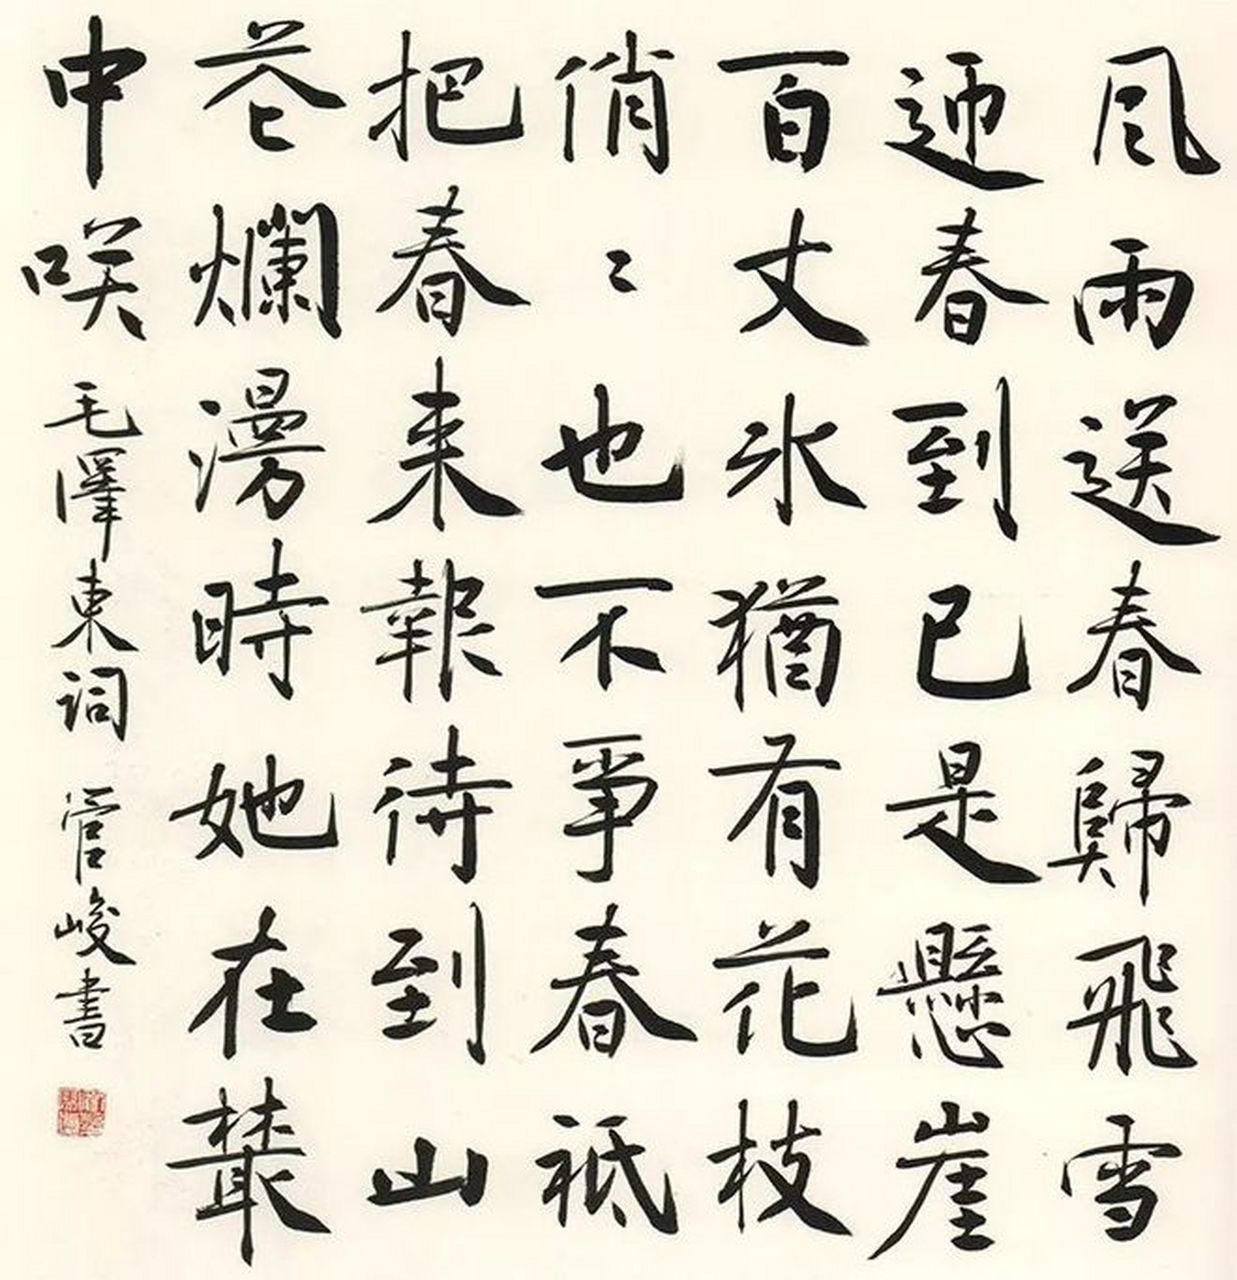 風雨送春歸飛雪
迎春到已是懸崖
百丈氷猶有花枝
俏〻也不爭春祗
把春来報待到山
花爛漫時她在叢
中咲 毛澤東詞 管峻書